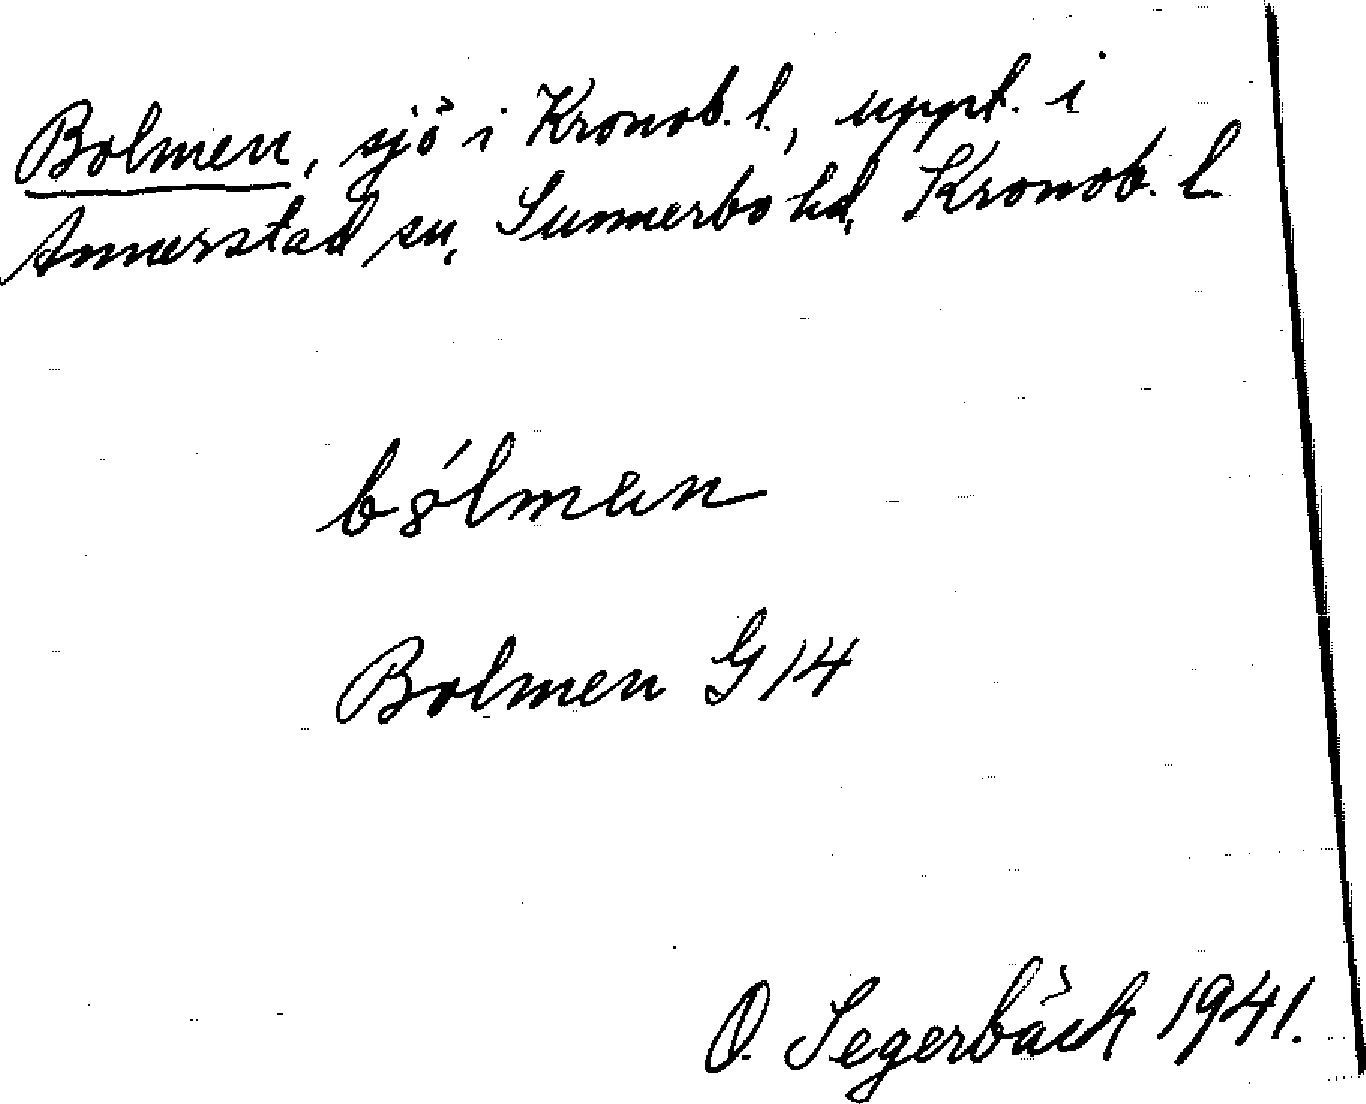 Bolmen, sjö i Kronob. l., uppt. i
Annerstad sn, Sunnerbo hd, Kronob. l.
bólmen
Bolmen G 14
O. Segerbäck 1941.